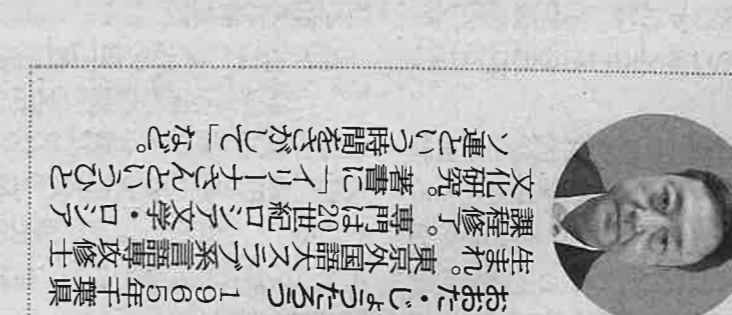 おおた・じょうたろう 1965年千葉県
生まれ。東京外国語大スラブ系言語専攻修士
課程修了。専門は20世紀ロシア文学・ロシア
文化研究。著書に「イリーナさんというひと
ソ連という時間をさがして」など。